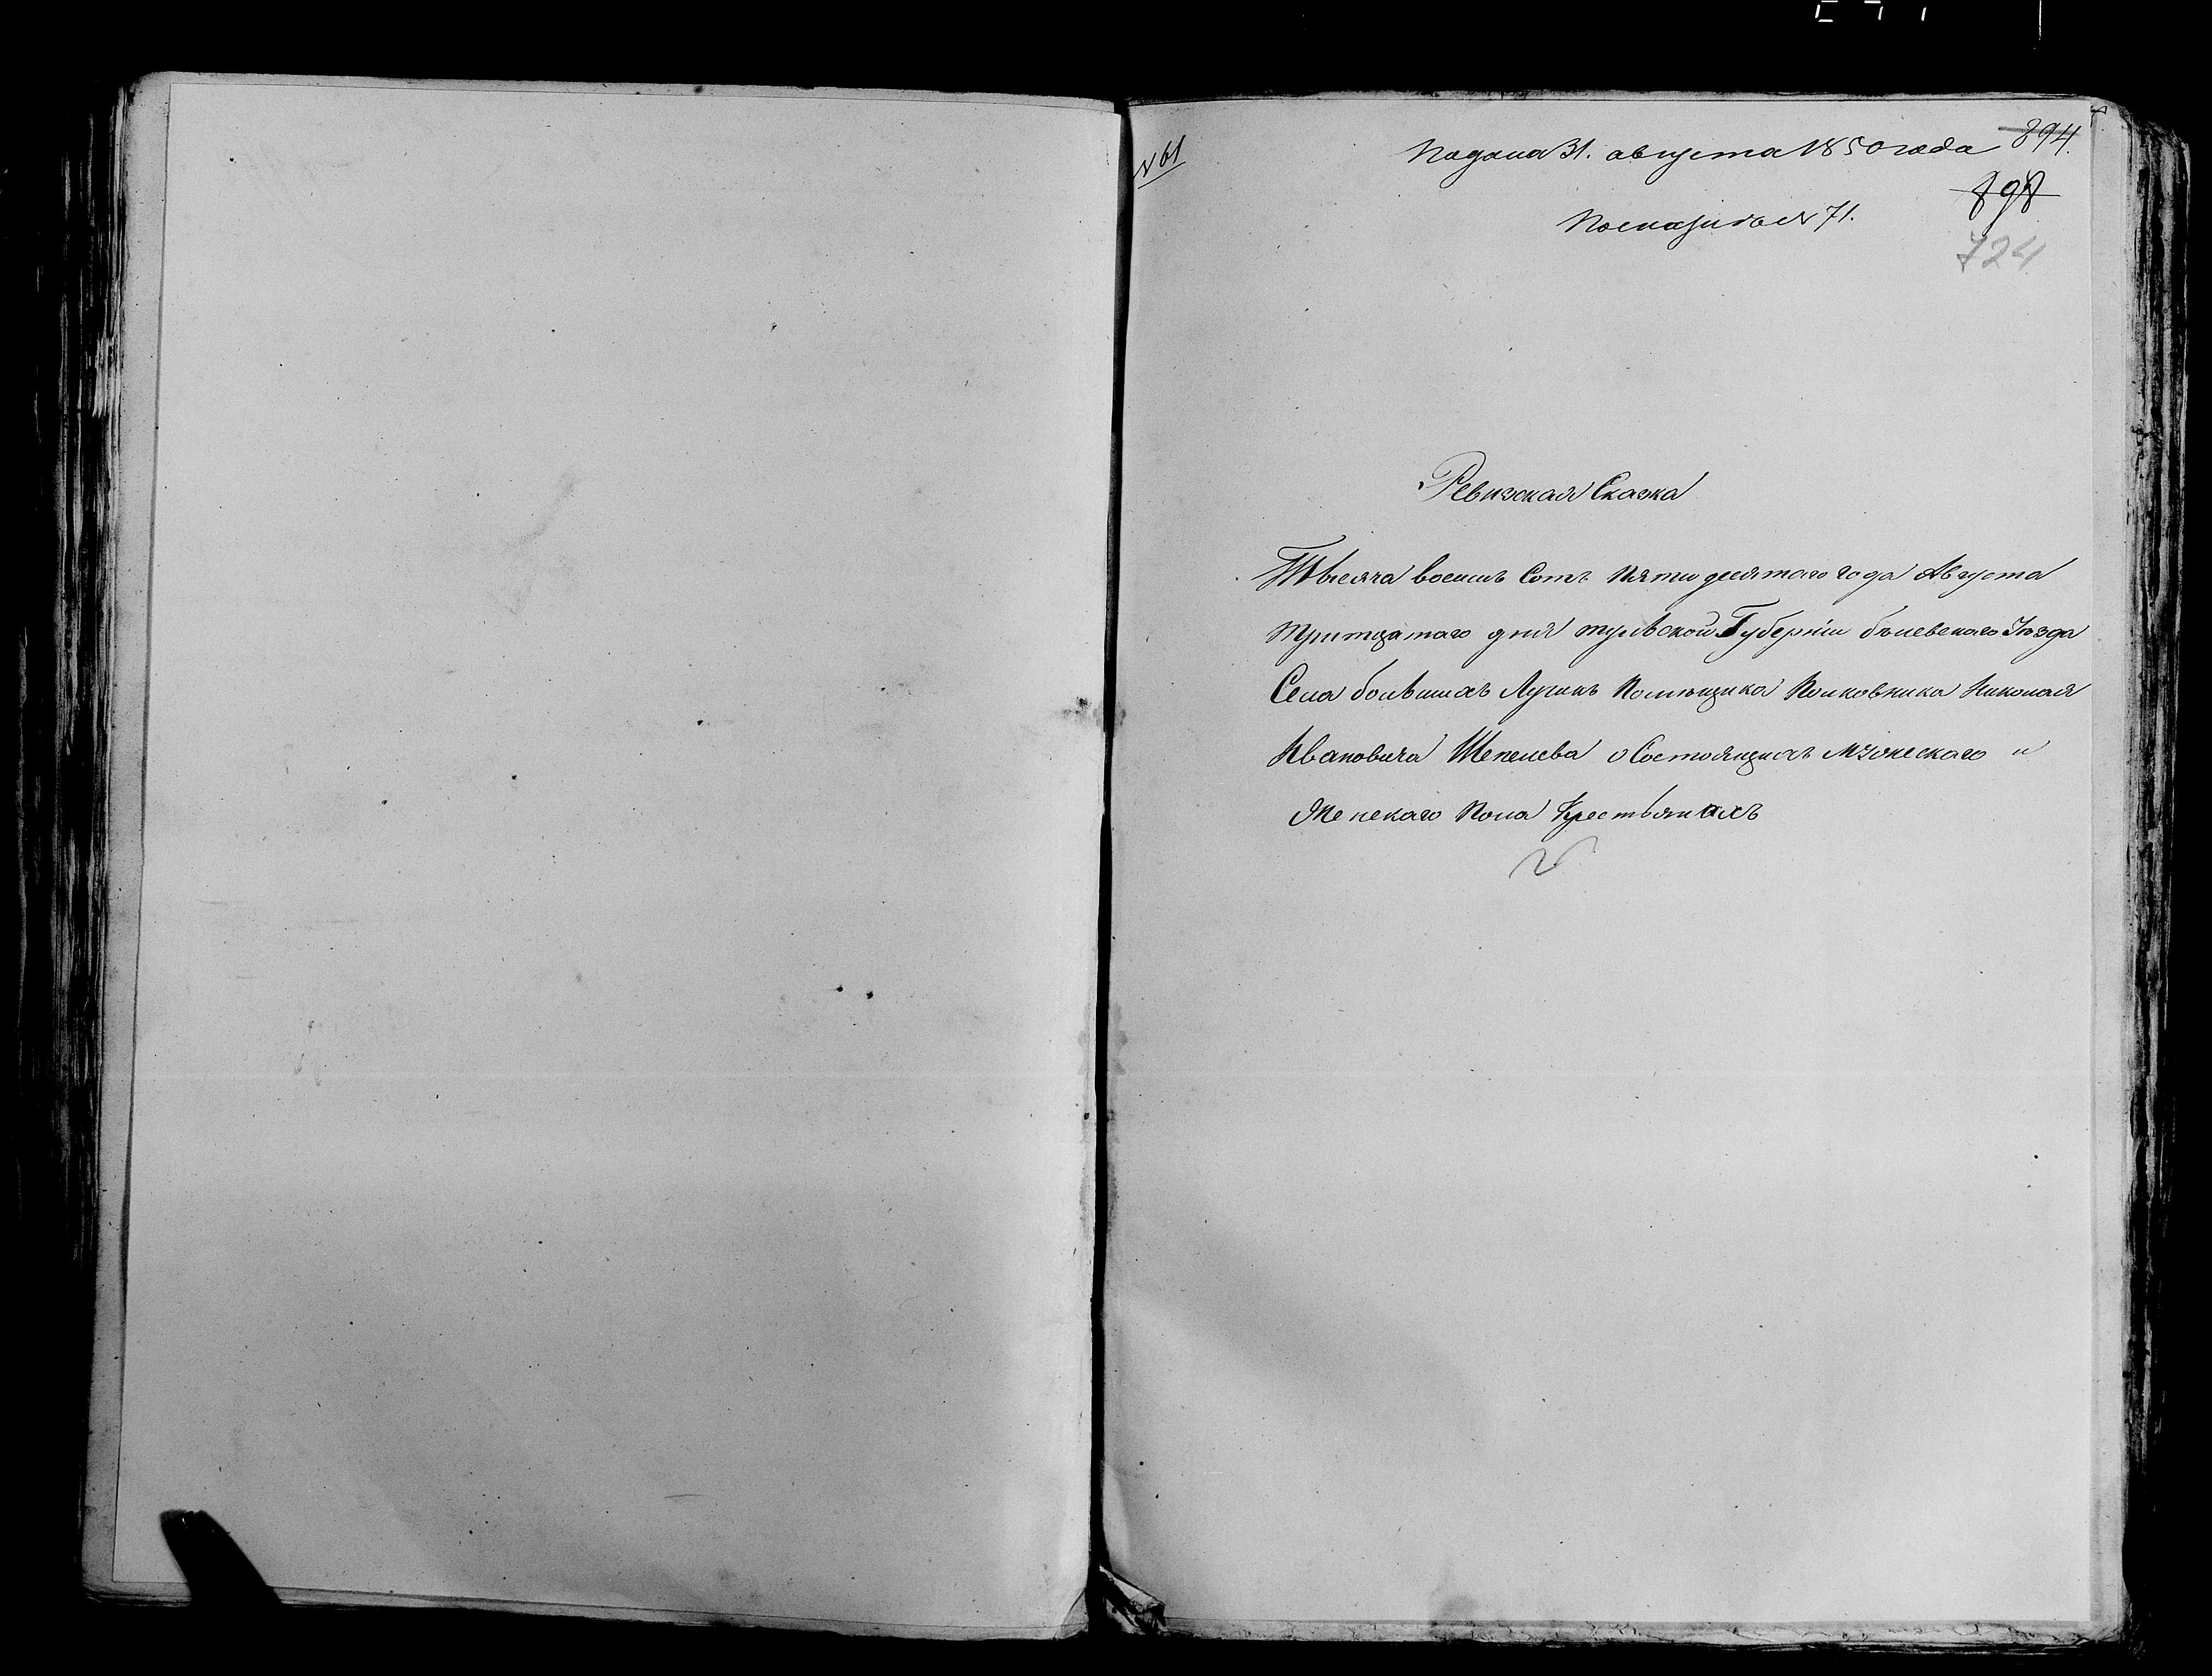 № 61
Подана 31. августа 1850 года 894.
898
По описи № 71.
724
Ревизская Сказка
Тысяча восемь Сотъ Пятидесятаго года Августа
тритцатаго дня тульской Губерніи белевскаго Уѣзда
Села большихъ Лучинъ Помѣщика Полковника Николая
Ивановича Шепелева о Состоящихъ мужескаго и
Женскаго Пола Крестьянахъ